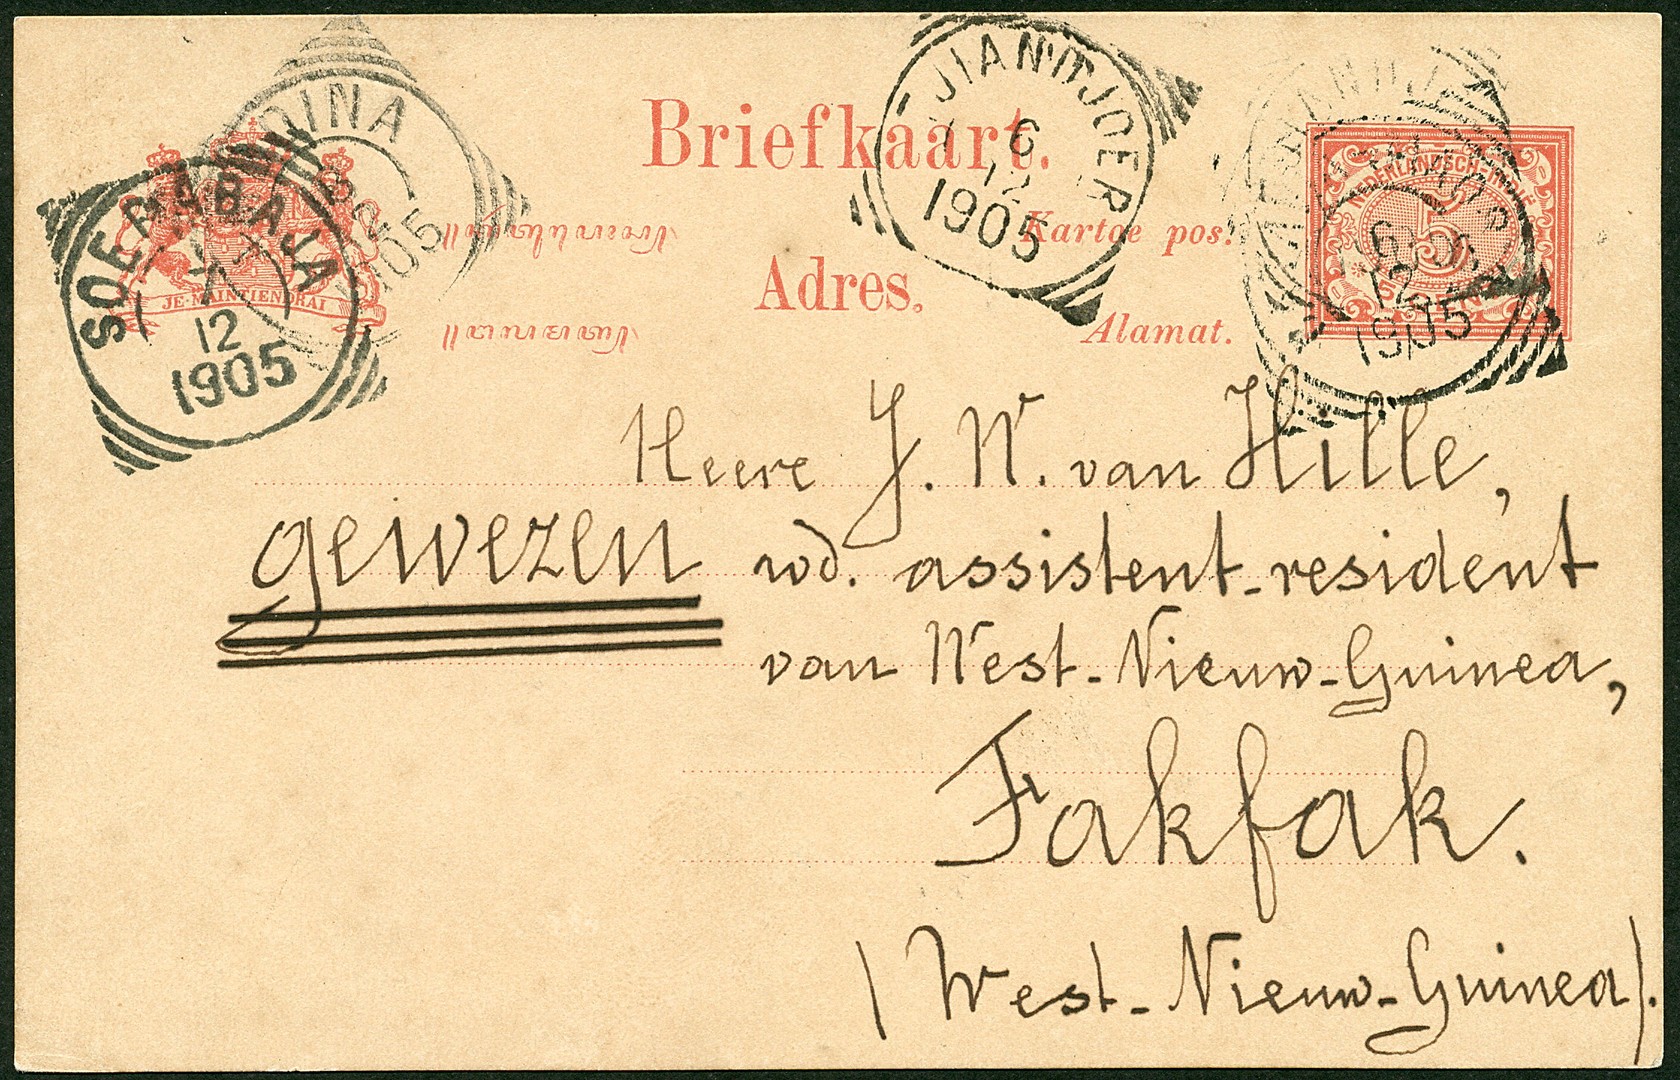 Briefkaart.
Kartoe pos.
Adres.
Alamat.
JE·MAINTIENDRAI
SOERABAJA
7
12
1905
TJIANTJOER
6
12
1905
NEDERLANDSCH-INDIË
5
6
12
1905
Heere J. W. van Hille,
gewezen wd. assistent-resident
van West-Nieuw-Guinea,
Fakfak.
(West-Nieuw-Guinea).